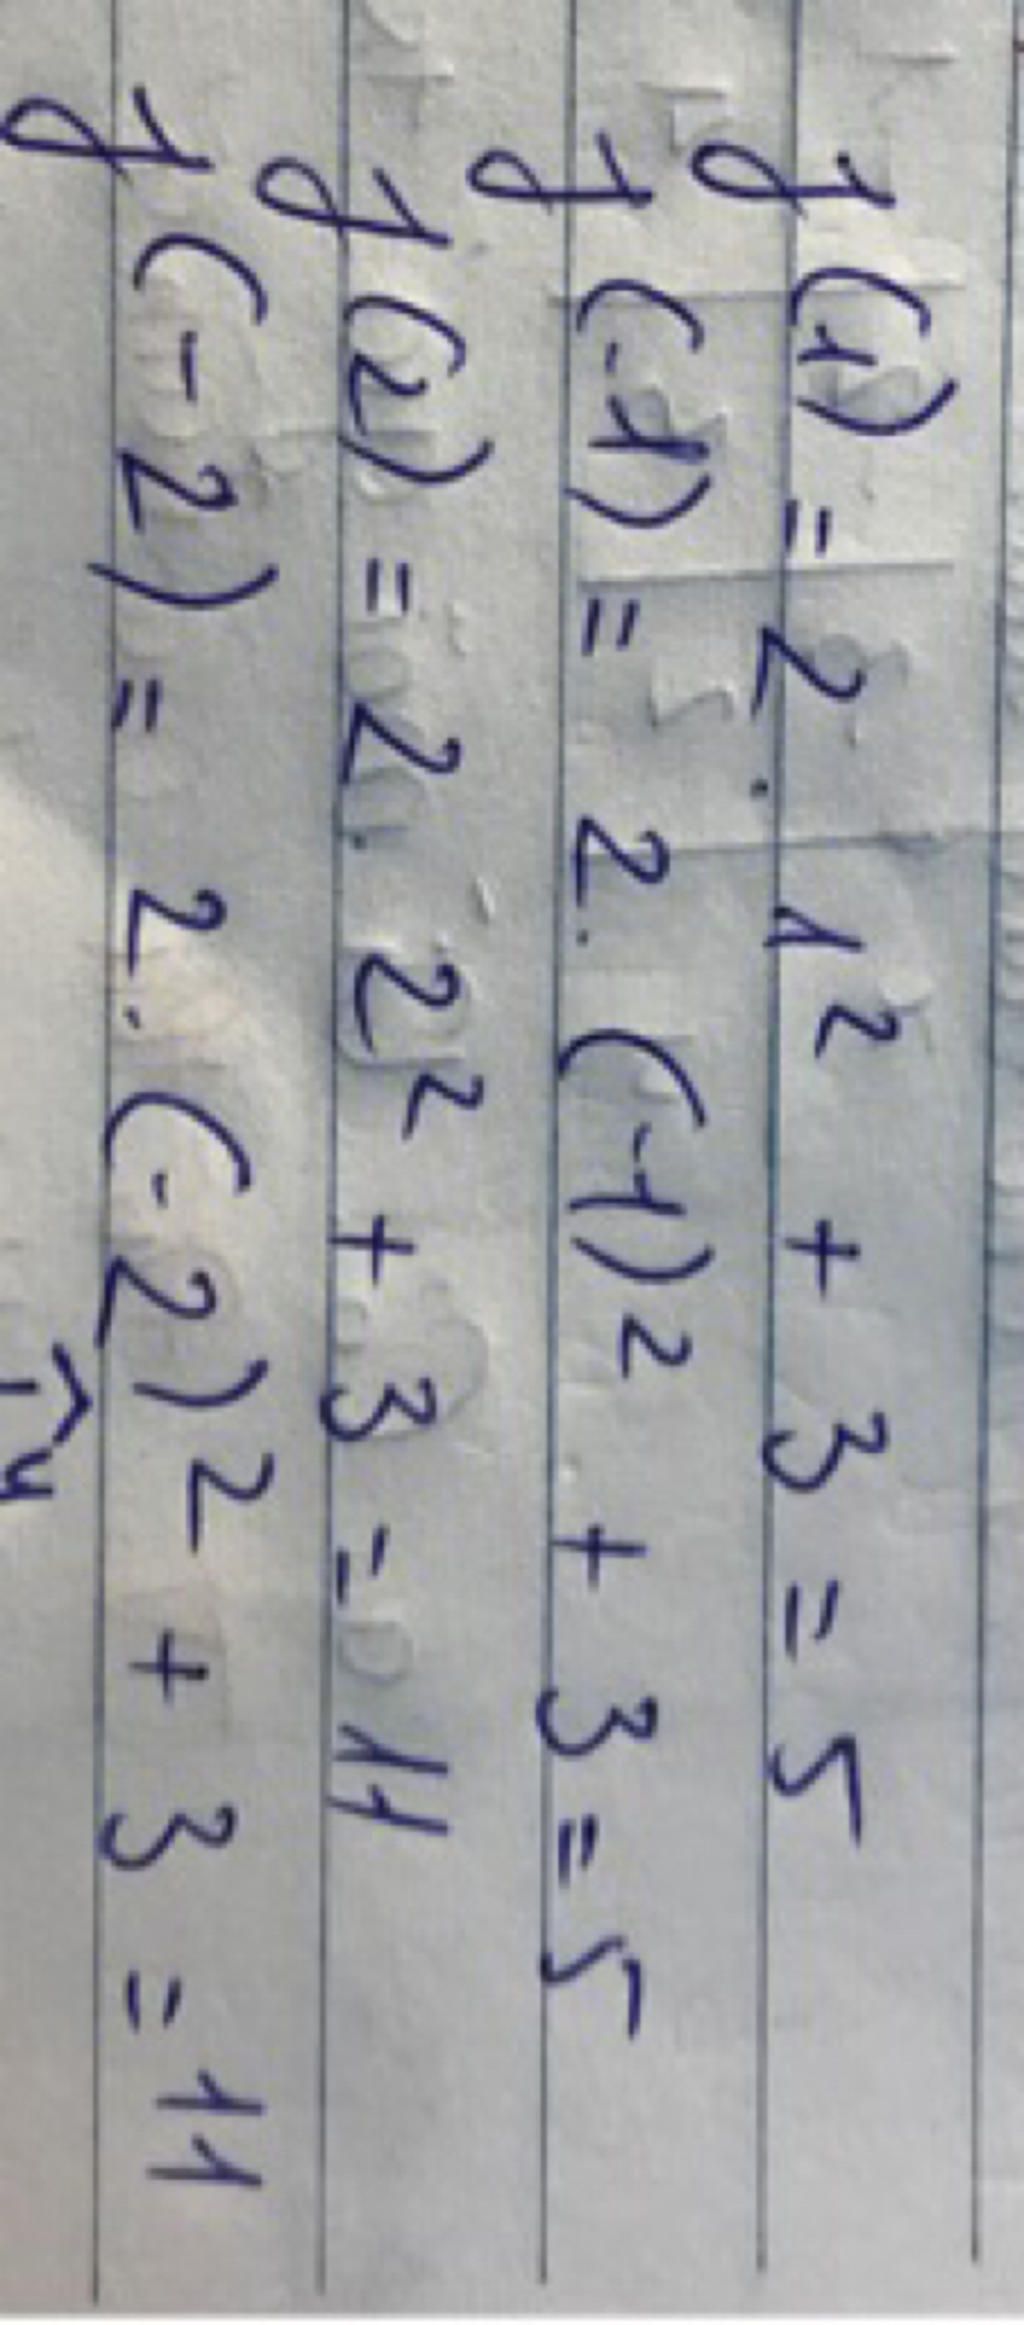 y(1) = 2 . 1² + 3 = 5
y(-1) = 2 . (-1)² + 3 = 5
y(2) = 2 . 2² + 3 = 11
y(-2) = 2 . (-2)² + 3 = 11
y